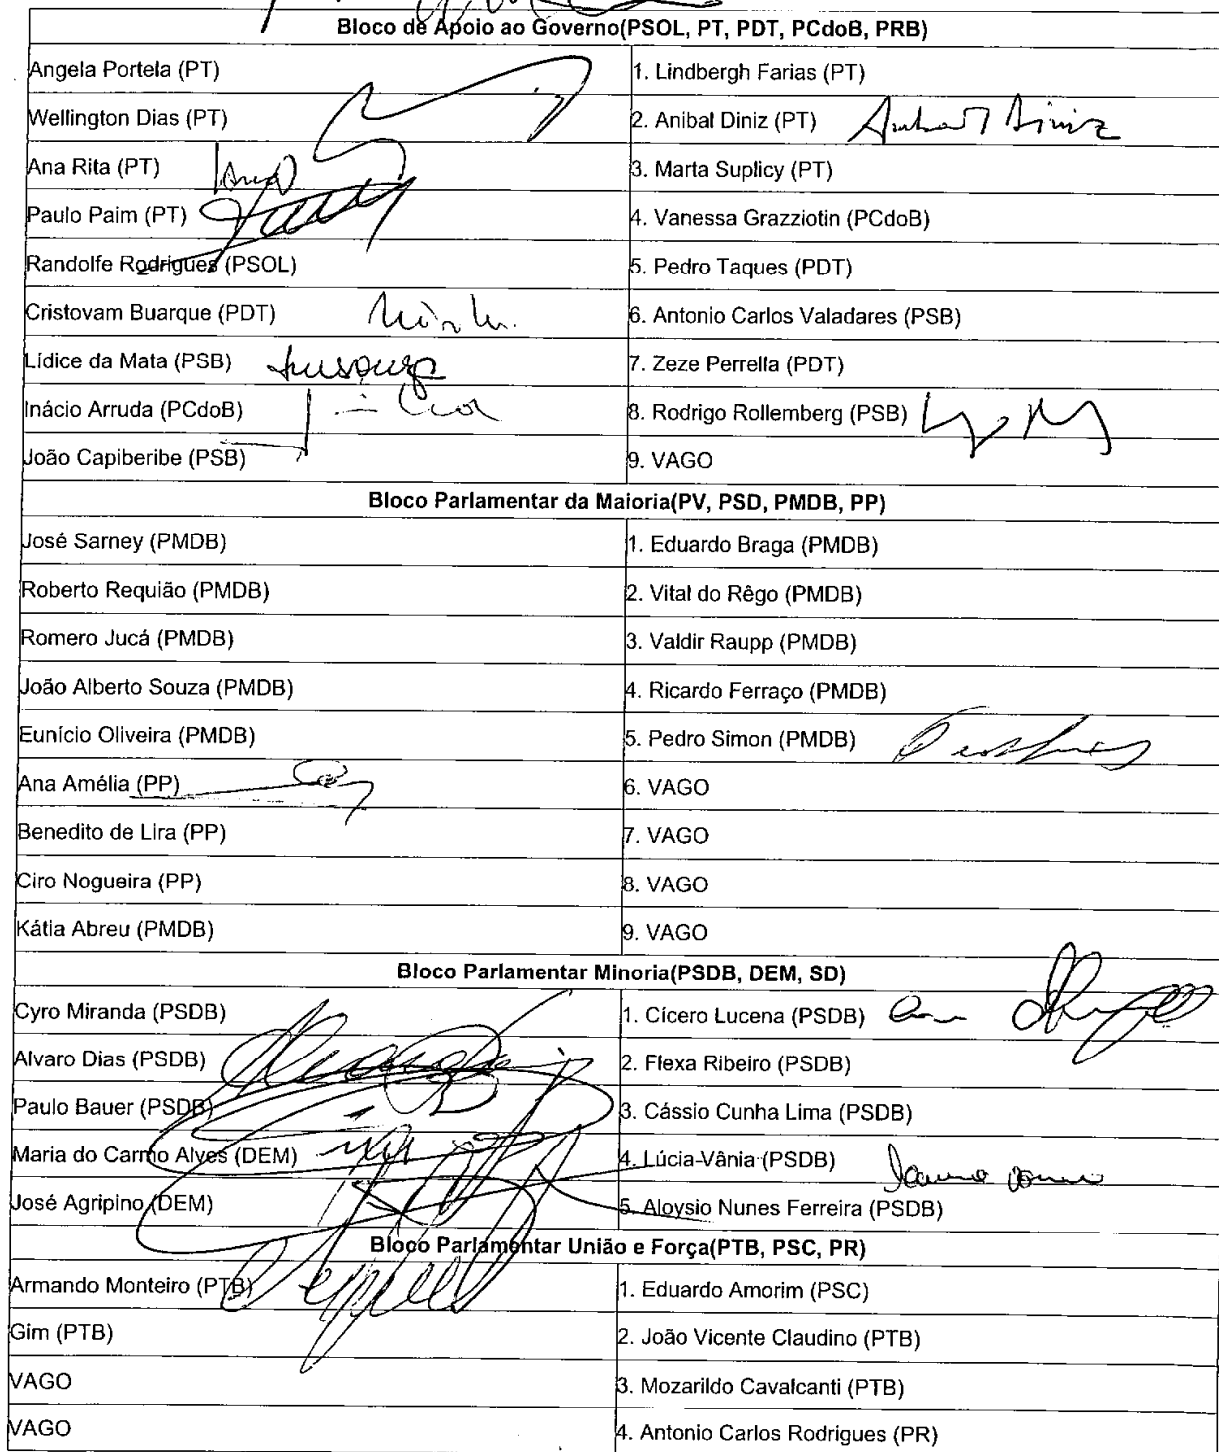 Bloco de Apoio ao Governo(PSOL, PT, PDT, PCdoB, PRB)
Angela Portela (PT)
1. Lindbergh Farias (PT)
Wellington Dias (PT)
2. Anibal Diniz (PT) Anibal Diniz
Ana Rita (PT)
3. Marta Suplicy (PT)
Paulo Paim (PT)
4. Vanessa Grazziotin (PCdoB)
Randolfe Rodrigues (PSOL)
5. Pedro Taques (PDT)
Cristovam Buarque (PDT)
6. Antonio Carlos Valadares (PSB)
Lídice da Mata (PSB)
7. Zeze Perrella (PDT)
Inácio Arruda (PCdoB)
8. Rodrigo Rollemberg (PSB)
João Capiberibe (PSB)
9. VAGO
Bloco Parlamentar da Maioria(PV, PSD, PMDB, PP)
José Sarney (PMDB)
1. Eduardo Braga (PMDB)
Roberto Requião (PMDB)
2. Vital do Rêgo (PMDB)
Romero Jucá (PMDB)
3. Valdir Raupp (PMDB)
João Alberto Souza (PMDB)
4. Ricardo Ferraço (PMDB)
Eunício Oliveira (PMDB)
5. Pedro Simon (PMDB)
Ana Amélia (PP)
6. VAGO
Benedito de Lira (PP)
7. VAGO
Ciro Nogueira (PP)
8. VAGO
Kátia Abreu (PMDB)
9. VAGO
Bloco Parlamentar Minoria(PSDB, DEM, SD)
Cyro Miranda (PSDB)
1. Cícero Lucena (PSDB)
Alvaro Dias (PSDB)
2. Flexa Ribeiro (PSDB)
Paulo Bauer (PSDB)
3. Cássio Cunha Lima (PSDB)
Maria do Carmo Alves (DEM)
4. Lúcia Vânia (PSDB)
José Agripino (DEM)
5. Aloysio Nunes Ferreira (PSDB)
Bloco Parlamentar União e Força(PTB, PSC, PR)
Armando Monteiro (PTB)
1. Eduardo Amorim (PSC)
Gim (PTB)
2. João Vicente Claudino (PTB)
VAGO
3. Mozarildo Cavalcanti (PTB)
VAGO
4. Antonio Carlos Rodrigues (PR)